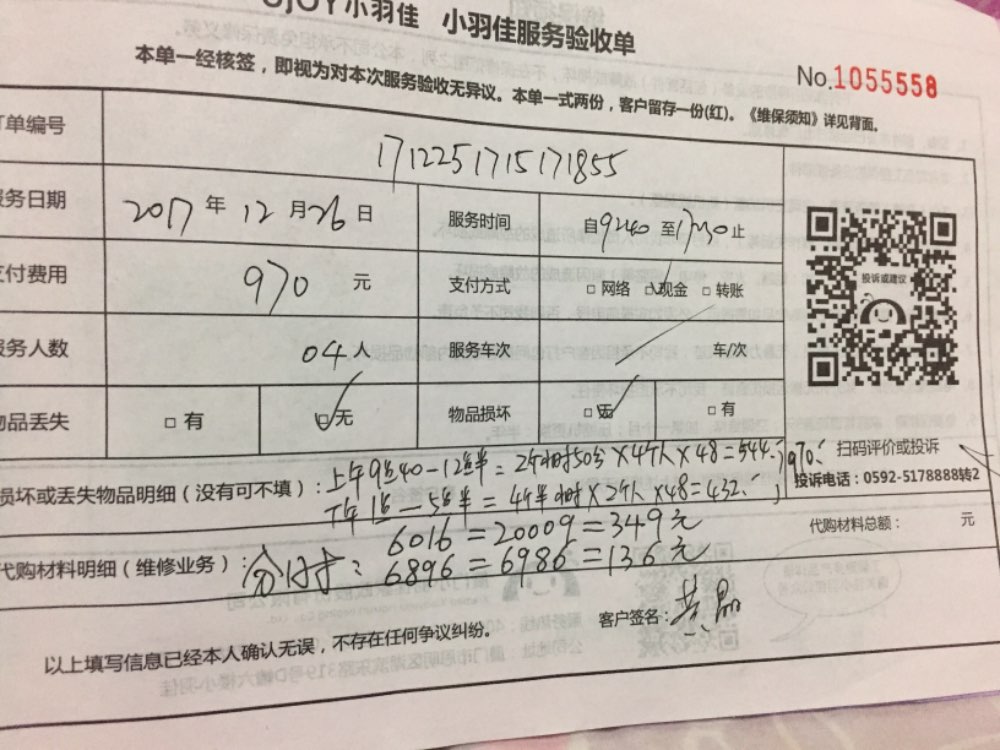 小羽佳 小羽佳服务验收单
本单一经核签，即视为对本次服务验收无异议。本单一式两份，客户留存一份(红)。《维保须知》详见背面。
No.1055558
单编号 1712251715171855
务日期 2017年12月26日 服务时间 自9:40至17:30止
付费用 970元 支付方式 □网络 □现金 □转账
务人数 04人 服务车次 车/次
品丢失 □有 □无 物品损坏 □无 □有
投诉或建议
扫码评价或投诉
投诉电话：0592-5178888转2
损坏或丢失物品明细（没有可不填）：上午9点40-12点半=2个小时50分×4个人×48=544. 970.
下午1点-5点半=4个半小时×2个人×48=432.
代购材料总额： 元
代购材料明细（维修业务）：分时： 6016=20009=349元
6896=6986=136元
以上填写信息已经本人确认无误，不存在任何争议纠纷。
客户签名：